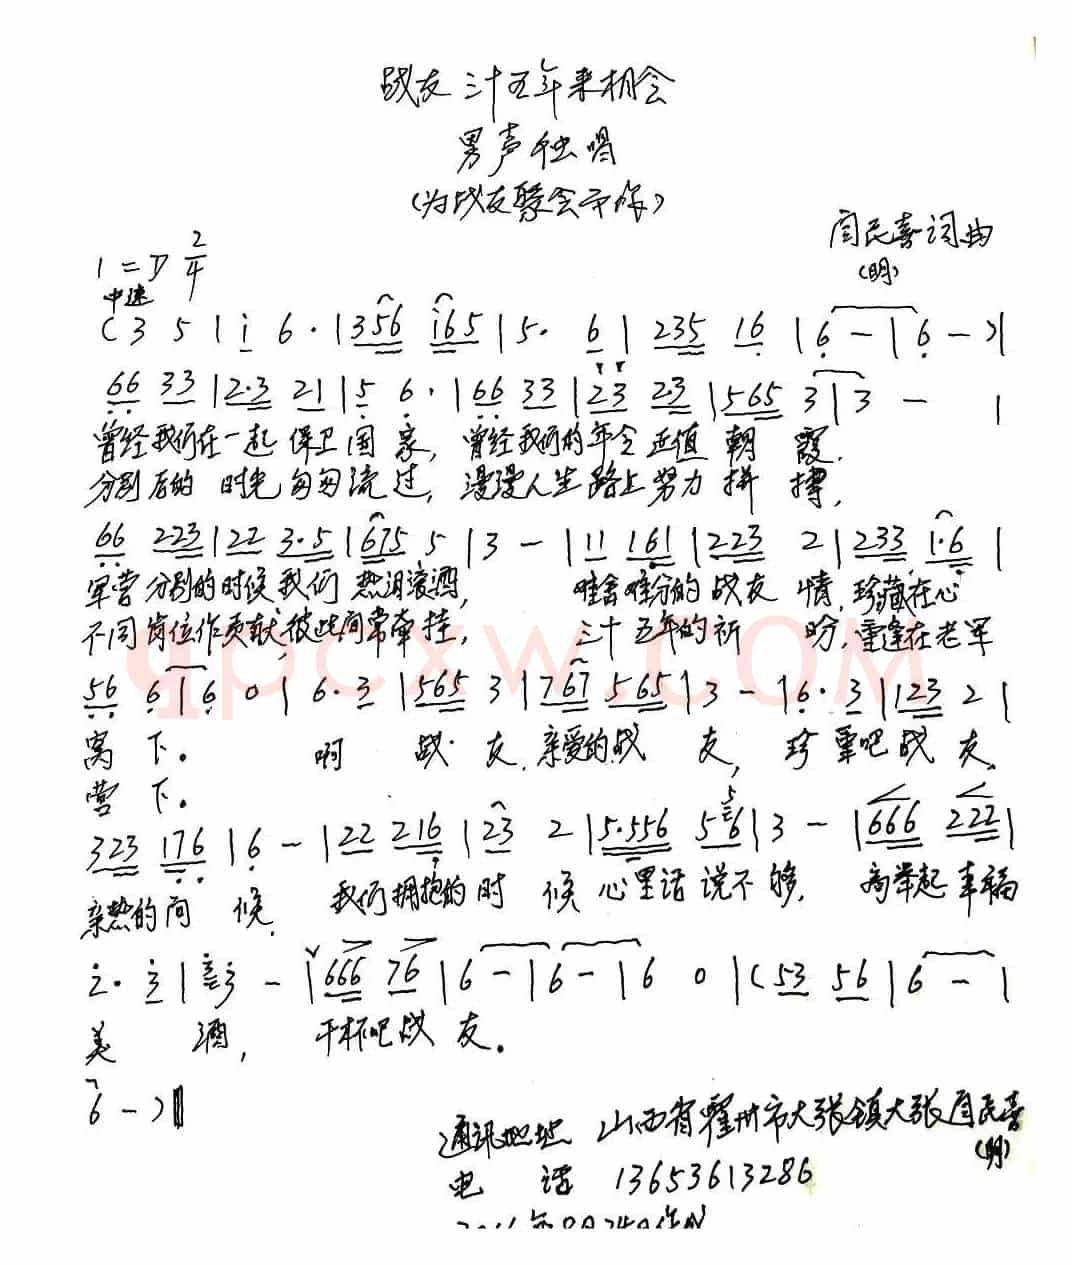 战友三十五年来相会
男声独唱
(为战友聚会而作)
闫民喜词曲
(明)
1=D 2/4
中速
(3 5 | i 6 · | 356 i65 | 5 · 6 | 235 16 | 6 - | 6 - ) |
66 33 | 2·3 21 | 5 6 · | 66 33 | 23 23 | 565 3 | 3 - |
曾经我们在一起保卫国家, 曾经我们的年令正值朝霞.
分别后的时光匆匆流过, 漫漫人生路上努力拼搏,
66 223 | 22 3·5 | 675 5 | 3 - | 11 161 | 223 2 | 233 1·6 |
军营分别的时候我们热泪滚洒, 难舍难分的战友情,珍藏在心
不同岗位作贡献,彼此间常牵挂, 三十五年的祈盼,重逢在老军
56 6 | 6 0 | 6·3 | 565 3 | 767 565 | 3 - | 6·3 | 123 2 |
窝下。 啊 战友,亲爱的战友, 珍重吧战友,
营下。
323 176 | 6 - | 22 216 | 23 2 | 5·556 56 | 3 - | 666 222 |
亲热的问候, 我们拥抱的时候心里话说不够, 高举起幸福
2· 3 | 3 - | 666 76 | 6 - | 6 - | 6 0 | (53 56 | 6 - |
美酒, 干杯吧战友。
6 - ) ‖
通讯地址 山西省霍州市大张镇大张闫民喜
(明)
电话 13653613286
qpcxw.com